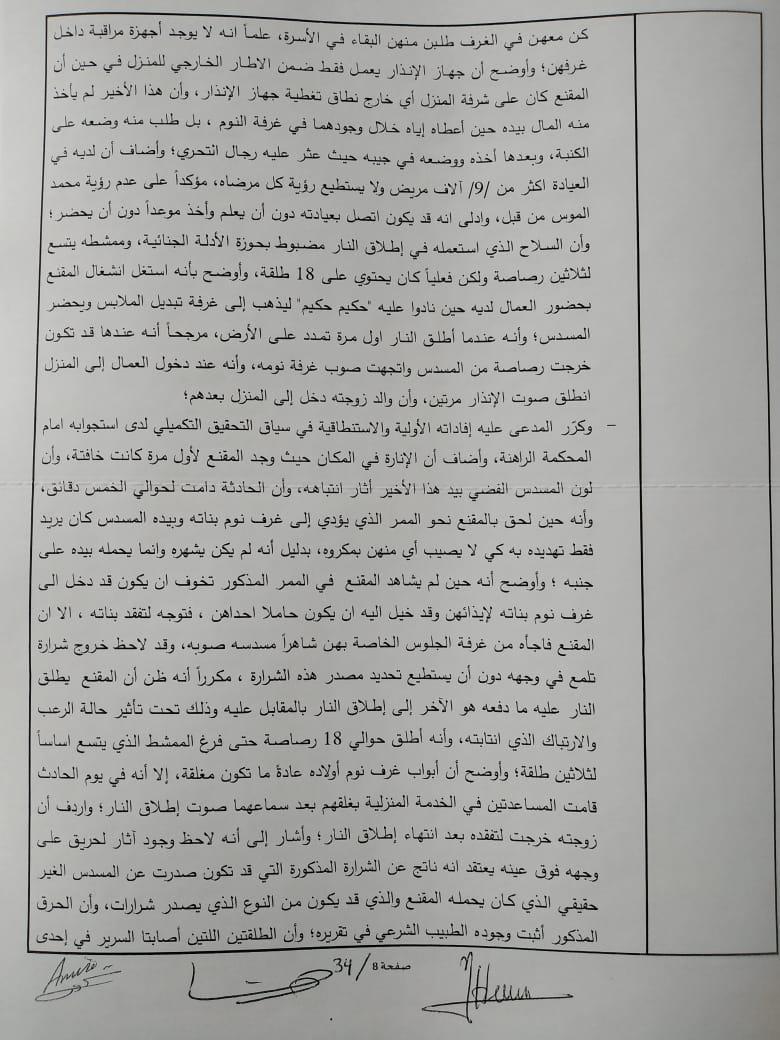 كن معهن في الغرف طلبن منهن البقاء في الأسرة، علماً انه لا يوجد أجهزة مراقبة داخل
غرفهن؛ وأوضح أن جهاز الإنذار يعمل فقط ضمن الاطار الخارجي للمنزل في حين أن
المقنع كان على شرفة المنزل أي خارج نطاق تغطية جهاز الإنذار، وأن هذا الأخير لم يأخذ
منه المال بيده حين أعطاه إياه خلال وجودهما في غرفة النوم ، بل طلب منه وضعه على
الكنبة، وبعدها أخذه ووضعه في جيبه حيث عثر عليه رجال التحري؛ وأضاف أن لديه في
العيادة اكثر من /9/ آلاف مريض ولا يستطيع رؤية كل مرضاه، مؤكداً على عدم رؤية محمد
الموس من قبل، وادلى انه قد يكون اتصل بعيادته دون أن يعلم وأخذ موعداً دون أن يحضر؛
وأن السلاح الذي استعمله في إطلاق النار مضبوط بحوزة الأدلة الجنائية، وممشطه يتسع
لثلاثين رصاصة ولكن فعلياً كان يحتوي على 18 طلقة، وأوضح بأنه استغل انشغال المقنع
بحضور العمال لديه حين نادوا عليه "حكيم حكيم" ليذهب إلى غرفة تبديل الملابس ويحضر
المسدس؛ وأنه عندما أطلق النار اول مرة تمدد على الأرض، مرجحاً أنه عندها قد تكون
خرجت رصاصة من المسدس واتجهت صوب غرفة نومه، وأنه عند دخول العمال إلى المنزل
انطلق صوت الإنذار مرتين، وأن والد زوجته دخل إلى المنزل بعدهم؛
– وكرّر المدعى عليه إفاداته الأولية والاستنطاقية في سياق التحقيق التكميلي لدى استجوابه امام
المحكمة الراهنة، وأضاف أن الإنارة في المكان حيث وجد المقنع لأول مرة كانت خافتة، وأن
لون المسدس الفضي بيد هذا الأخير أثار انتباهه، وأن الحادثة دامت لحوالي الخمس دقائق،
وأنه حين لحق بالمقنع نحو الممر الذي يؤدي إلى غرف نوم بناته وبيده المسدس كان يريد
فقط تهديده به كي لا يصيب أي منهن بمكروه، بدليل أنه لم يكن يشهره وانما يحمله بيده على
جنبه ؛ وأوضح أنه حين لم يشاهد المقنع في الممر المذكور تخوف ان يكون قد دخل الى
غرف نوم بناته لإيذائهن وقد خيل اليه ان يكون حاملا احداهن ، فتوجه لتفقد بناته ، الا ان
المقنع فاجأه من غرفة الجلوس الخاصة بهن شاهراً مسدسه صوبه، وقد لاحظ خروج شرارة
تلمع في وجهه دون أن يستطيع تحديد مصدر هذه الشرارة ، مكرراً أنه ظن أن المقنع يطلق
النار عليه ما دفعه هو الآخر إلى إطلاق النار بالمقابل عليه وذلك تحت تأثير حالة الرعب
والارتباك الذي انتابته، وأنه أطلق حوالي 18 رصاصة حتى فرغ الممشط الذي يتسع اساساً
لثلاثين طلقة؛ وأوضح أن أبواب غرف نوم أولاده عادةً ما تكون مغلقة، إلا أنه في يوم الحادث
قامت المساعدتين في الخدمة المنزلية بغلقهم بعد سماعهما صوت إطلاق النار؛ واردف أن
زوجته خرجت لتفقده بعد انتهاء إطلاق النار؛ وأشار إلى أنه لاحظ وجود آثار لحريق على
وجهه فوق عينه يعتقد انه ناتج عن الشرارة المذكورة التي قد تكون صدرت عن المسدس الغير
حقيقي الذي كان يحمله المقنع والذي قد يكون من النوع الذي يصدر شرارات، وأن الحرق
المذكور أثبت وجوده الطبيب الشرعي في تقريره؛ وأن الطلقتين اللتين أصابتا السرير في إحدى
صفحة 8 / 34